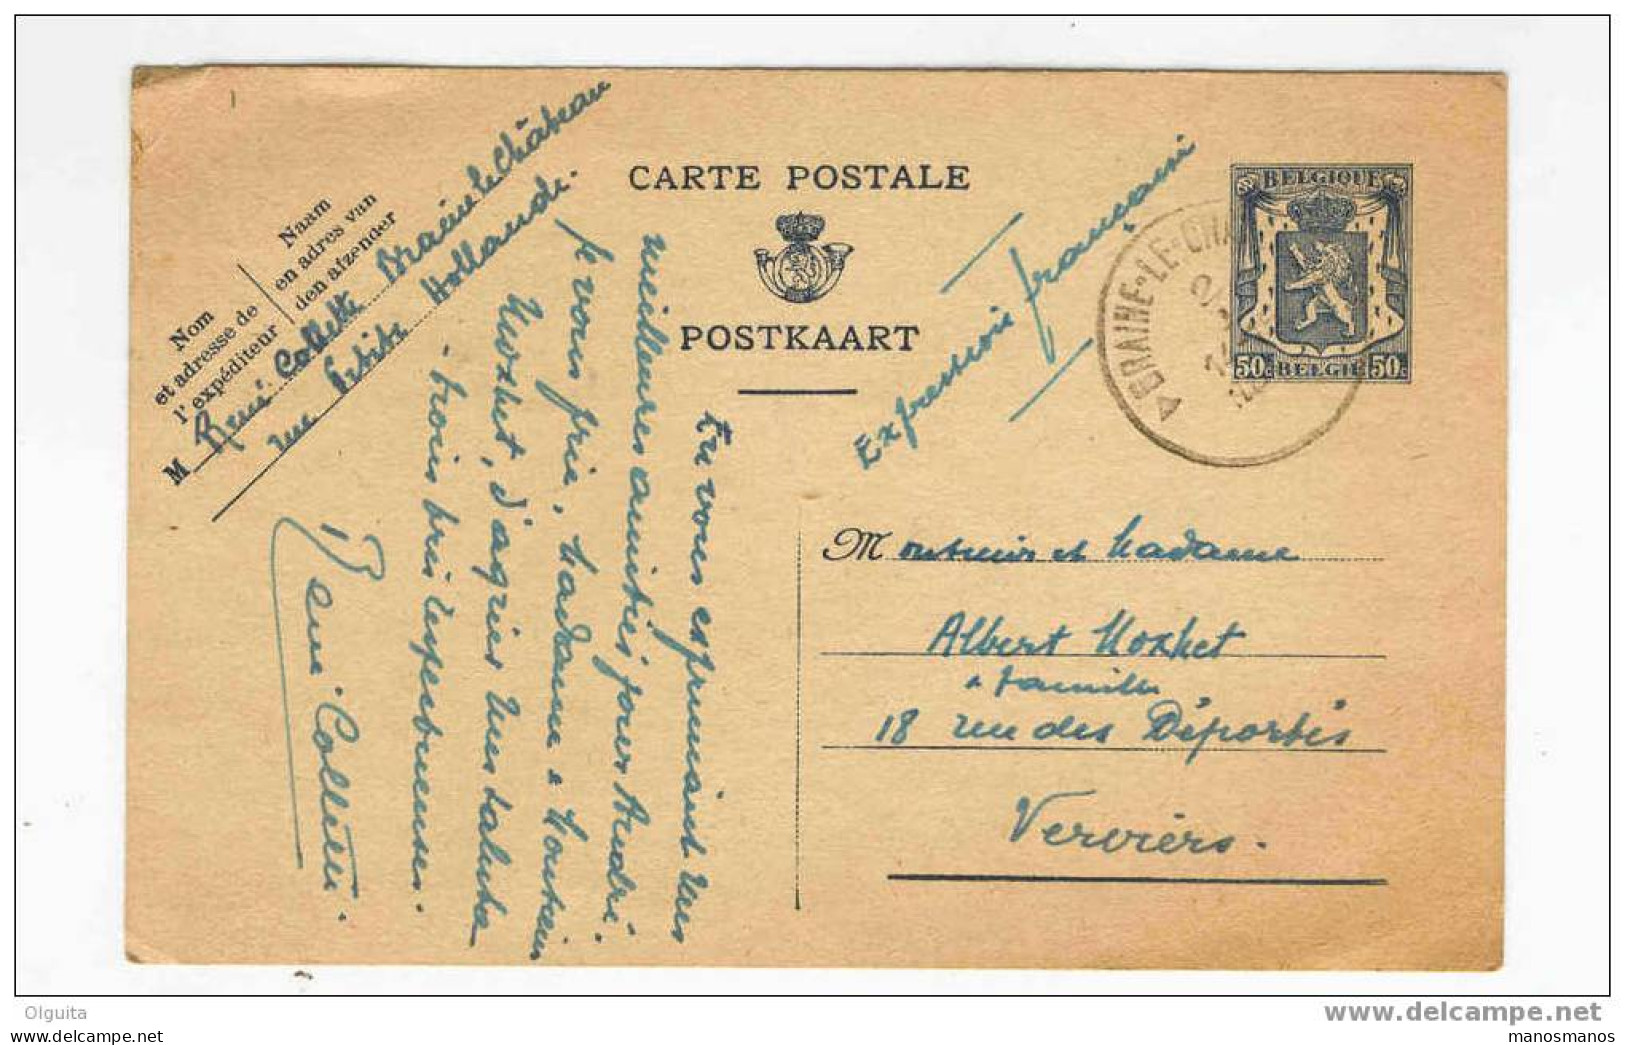 CARTE POSTALE
POSTKAART
BELGIQUE
50c BELGIË 50c
BRAINE-LE-CHA
Nom
et adresse de
l'expéditeur
Naam
en adres van
den afzender
M René Collette Braine le Château
rue Hollande
Expression française
En vous exprimant mes
meilleures amitiés pour André
je vous prie, Madame & Monsieur
Moxhet, d'agréer mes saluts
trois fois respectueux.
René Collette.
Monsieur et Madame
Albert Moxhet
& famille
18 rue des Déportés
Verviers.
Olguita
manosmanos
www.delcampe.net